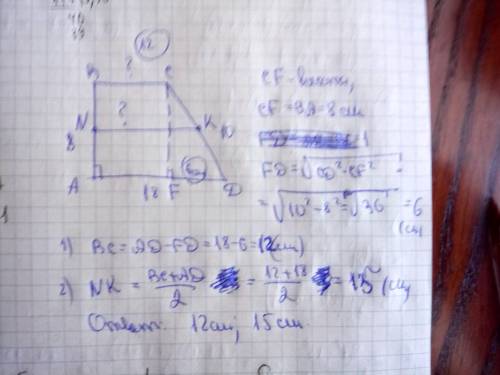 12
B ? C
N ? K 10
8
A 18 F 6 D
CF - высота,
CF = BA = 8 см
FD = √CD² - CF² =
= √10² - 8² = √36 = 6
(см)
1) BC = AD - FD = 18 - 6 = 12 (см)
2) NK = BC + AD / 2 = 12 + 18 / 2 = 15 (см)
Ответ: 12 см; 15 см.